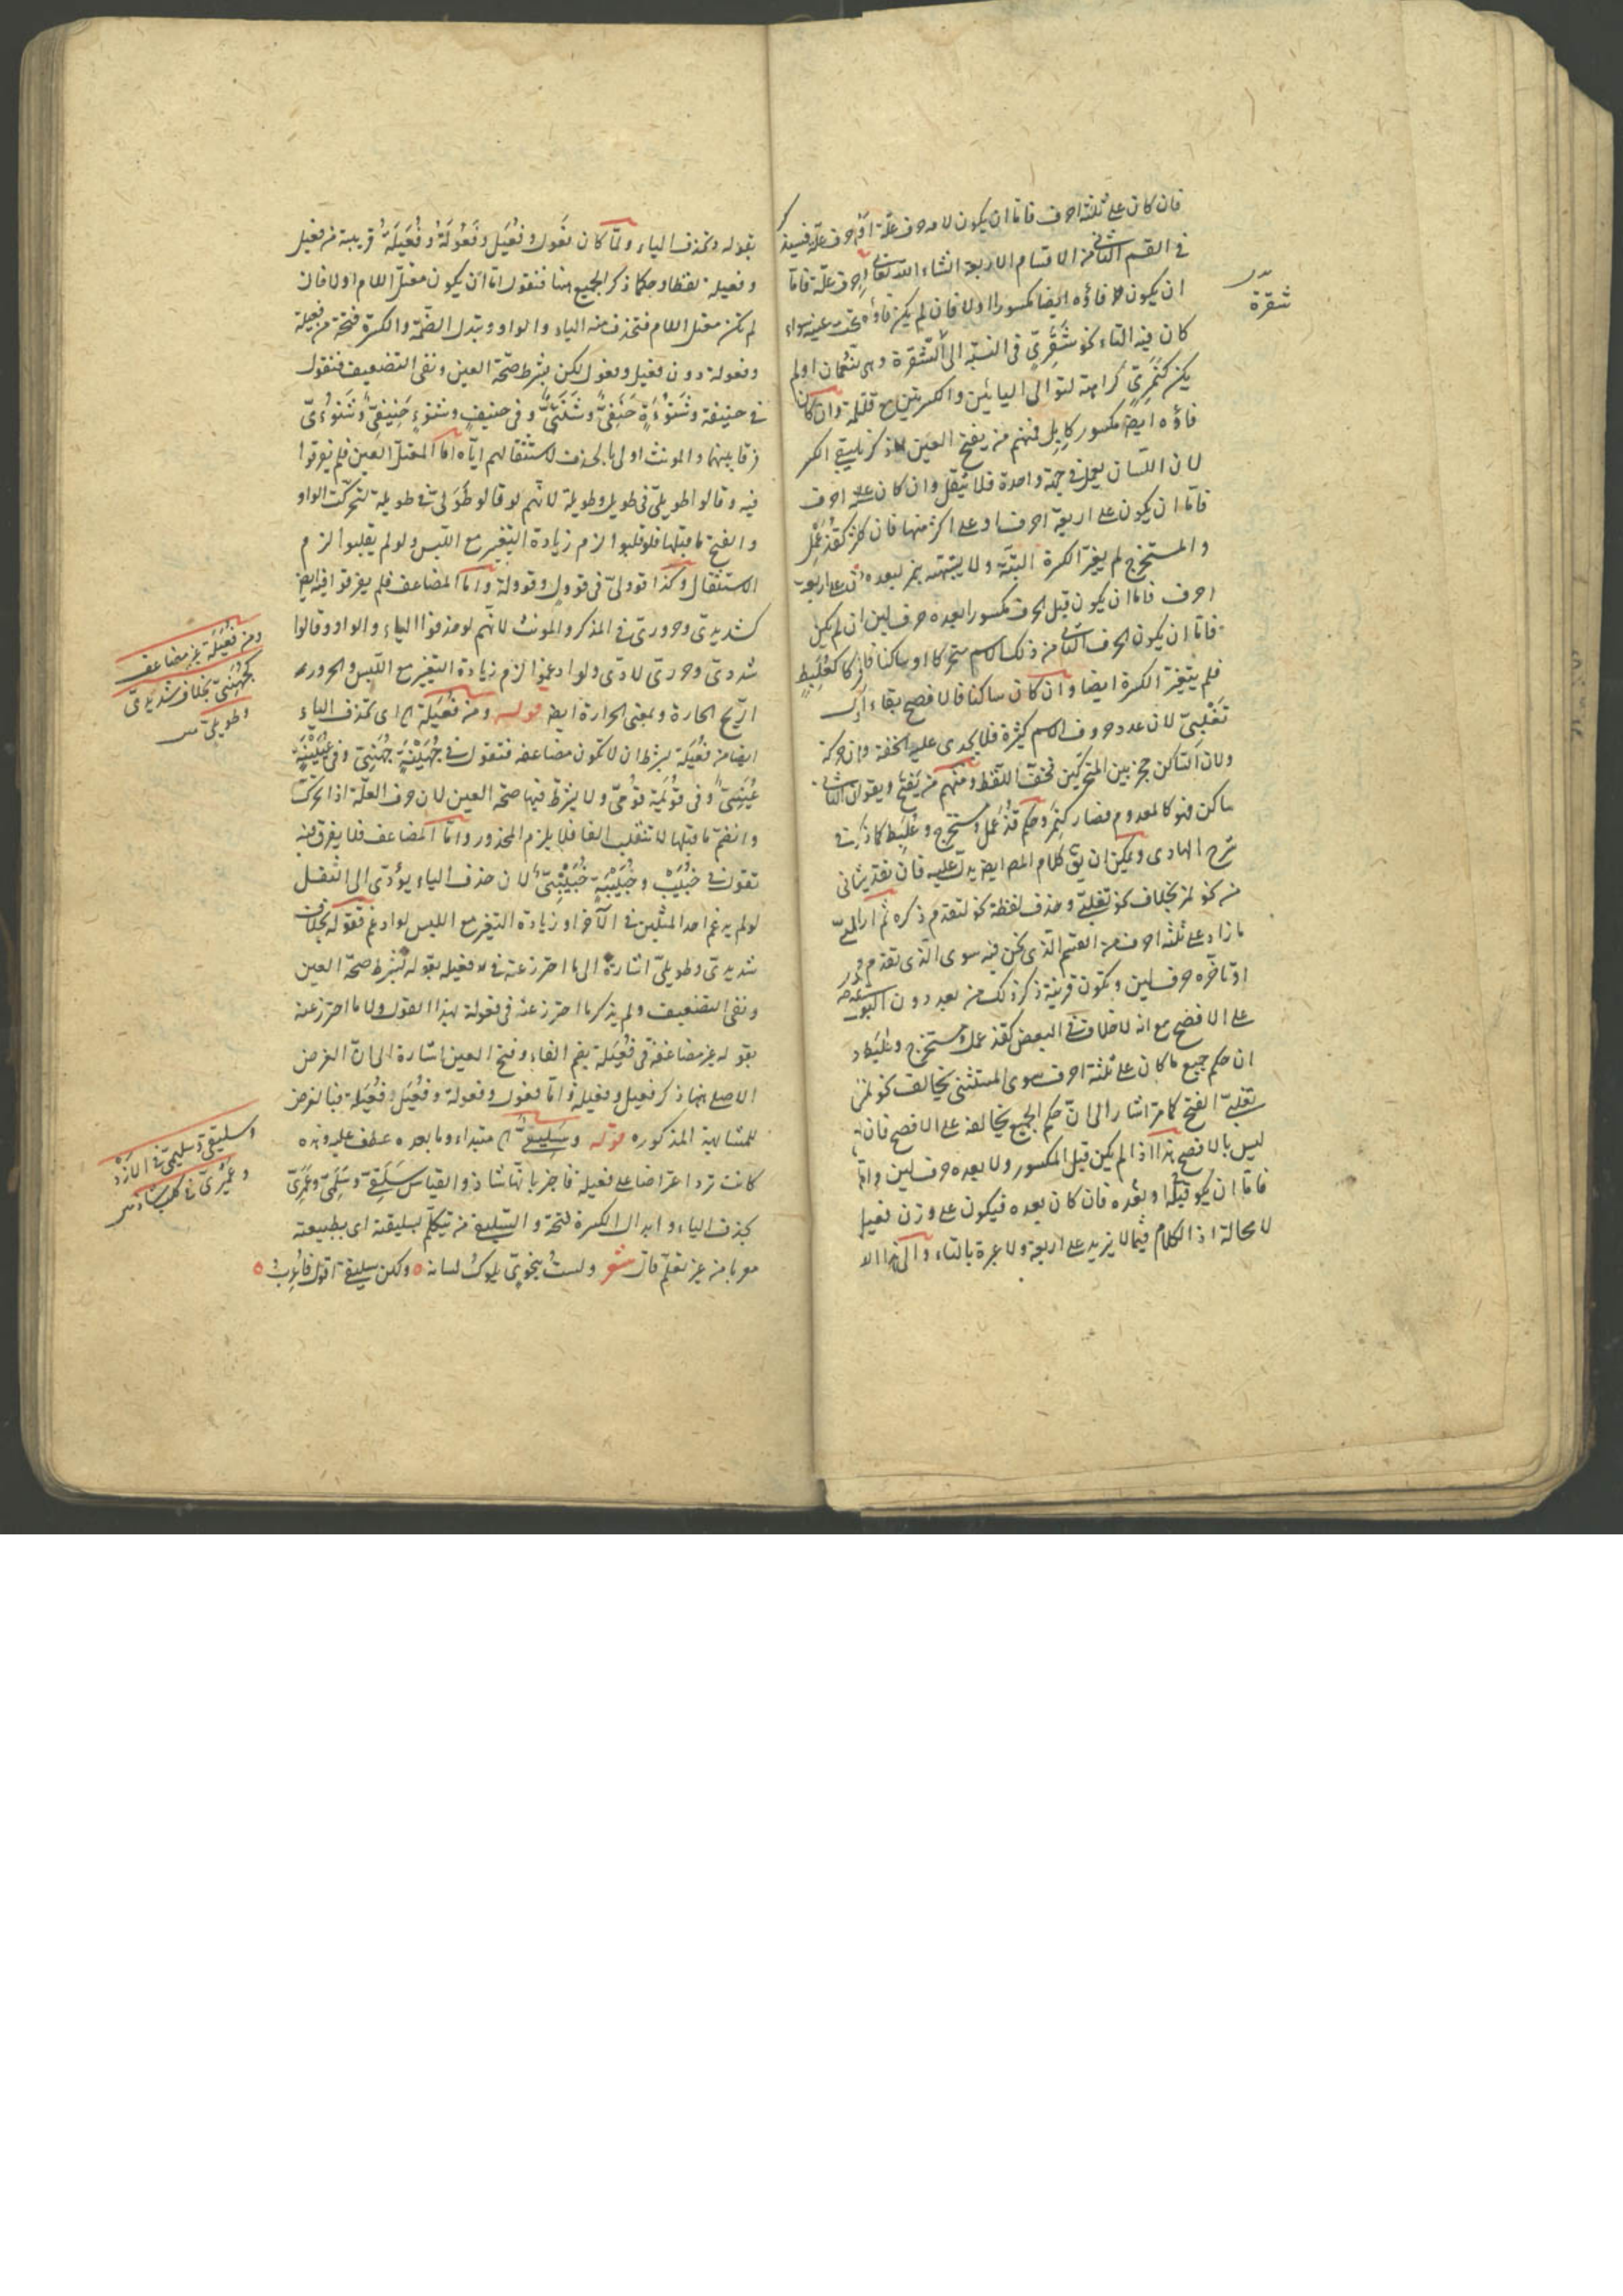 فان كان على ثلثة احرف فاما ان يكون لامه حرف علة او لا حرف علة فسيذكر
فى القسم الثانى من الاقسام الاربعة انشاء الله تعالى حرف علة فاما
ان يكون فاؤه ايضا مكسورا اولا فان لم يكن فاؤه عينه سواء
كان فيه التاء نحو شَقَرِىّ فى النسبة الى الشقرة وهى شقائق النعمان او لم
يكن كنَمَرِىّ كراهة لتوالى اليائين والكسرتين مع قلته وان كان
فاؤه ايضا مكسورا كاِبِل فمنهم من يفتح العين لما ذكر ومنهم من يبقى الكسر
لان اللسان يعمل فى جهة واحدة فلا يثقل وان كان على احرف
فاما ان يكون على اربعة احرف او على اكثر منها فان كان اكثر كقُذَعْمِل
والمستخرج لم يغير الكسرة البتة ولا يشتبه بنمر لبعده وان كان على اربعة
احرف فاما ان يكون قبل الحرف مكسورا بعده حرف لين ان لم يكن
فاما ان يكون الحرف الثانى من ذلك الاسم متحركا او ساكنا فان كان متحركا كعُلَبِطٍ
فلم يتغير الكسرة ايضا وان كان ساكنا فالافصح بقاء
تَغْلِبِىّ لان عدد حروف الاسم كثيرة فلا يجدى عليه الخفة وان حركة
ولان الساكن حجز بين المتحركين فخف اللفظ ومنهم من يفتح ويقول ان الثانى
ساكن فهو كالمعدوم فصار كنمر وحكم قذعمل ومستخرج وعلبط كما ذكرت فى
شرح الهادى ويمكن ان يق كلام المص ايضا يدل عليه فان تقديره بثانى
من نحو نمر بخلاف نحو تغلبى وحذف لفظة نحو لتقدم ذكره ثم اراد الى
ما زاد على ثلثة احرف من القسم الذى نحن فيه سوى الذى تقدم
او تأخره حرف لين ويكون قرينة ذكر ذلك من بعد دون
على الافصح مع انه لا خلاف فى البعض كقذعمل ومستخرج وعلبط
ان حكم جميع ما كان على ثلثة احرف سوى المستثنى يخالف نحو نمر
تغلبى الفتح كما مر اشار الى ان حكم الجميع يخالفه على الافصح فان
ليس بالافصح هذا اذا لم يكن قبل المكسور ولا بعده حرف لين واما
فاما ان يكون قبله او بعده فان كان بعده فيكون على وزن فعيل
لا محالة اذ الكلام فيما لا يزيد على اربعة ولا عبرة بالتاء والى هذا
شقرة
بقوله وتحذف الياء ولما كان فَعُول وفُعَيل وفَعُولَة وفُعَيلَة قريبة من فعيل
وفعيلة لفظا وحكما ذكر الجميع هنا فنقول اما ان يكون معتل اللام اولا فان
لم تكن معتل اللام فتحذف منه الياء والواو ويبدل الضمة والكسرة فتحة من فعيلة
وفعولة دون فعيل وفعول لكن بشرط صحة العين ونفى التضعيف فتقول
فى حنيفة وشَنُوْءَةٍ حَنَفِىّ وشَنَئِىّ وفى حنيف وشنوء حَنِيفِىّ وشَنُوْئِىّ
فرقا بينهما والمونث اولى بالحذف لاستثقالهم اياه اما المعتل العين فلم يفرقوا
فيه وقالوا طويلى فى طويل وطويلة لانهم لو قالوا طَوَلى فى طويلة لتحركت الواو
وانفتح ما قبلها فلو قلبوا لزم زيادة التغيير مع اللبس ولو لم يقلبوا لزم
الاستثقال وكذا قوولى فى قوول وقوولة واما المضاعف فلم يفرقوا فيه ايضا
كشديدى وحرورى فى المذكر والمونث لانهم لو حذفوا الياء والواو وقالوا
شددى وحررى لادى ولو ادغموا لزم زيادة التغير مع اللبس والحرور
الريح الحارة وبمعنى الحرارة ايضا قوله ومن فُعَيلة اى تحذف الياء
ايضا من فُعَيلة بشرط ان لا تكون مضاعفه فتقول فى جُهَيْنَةٍ جُهَنِىّ وفى عُيَيْنَةٍ
عُيَنِىّ وفى قُوَيْمَة قُوَمِىّ ولا يشترط فيها صحة العين لان حرف العلة اذا تحركت
وانضم ما قبلها لا تنقلب الفا فلا يلزم المحذور واما المضاعف فلا يفرق فيه
تقول فى خُبَيْبٍ وخُبَيْبَةٍ خُبَيْبِىّ لان حذف الياء يؤدى الى الثقل
لو لم يدغم احد المثلين فى الآخر او زيادة التغير مع اللبس لو ادغم فقوله بخلاف
شديدى وطويلى اشارة الى ما احترز عنه فى فعيله بقوله بشرط صحة العين
ونفى التضعيف ولم يذكر ما احترز عنه فى فعولة بهذا القول ولا ما احترز عنه
بقوله غير مضاعفة فى فُعَيلة بضم الفاء وفتح العين اشارة الى ان الغرض
الاصلى هنا ذكر فعيل وفعيلة واما فعول وفعولة وفُعَيل وفُعَيلة فبالغرض
للمشابهة المذكوره قوله وسَلِيقىّ مبتداء وما بعده عطف عليه وهذه
كانت ترد اعتراضا على فعيلة فاجز بانها شاذ والقياس سَلَقِىّ وسَلَمِىّ وعَمَرِىّ
بحذف الياء وابدال الكسرة فتحة والسليقى من يتكلم بسليقته اى بطبيعته
معربا من غير تعلم قال شعر ولست بنحوىّ يلوك لسانه ٥ ولكن سليقى اقول فاعرب ٥
ومن فُعَيْلَة غير مضاعف
كجُهَنِىّ بخلاف شديدى
وطويلى
وسليقى وسليمى فى الازد
وعميرى فى كلب شاذ